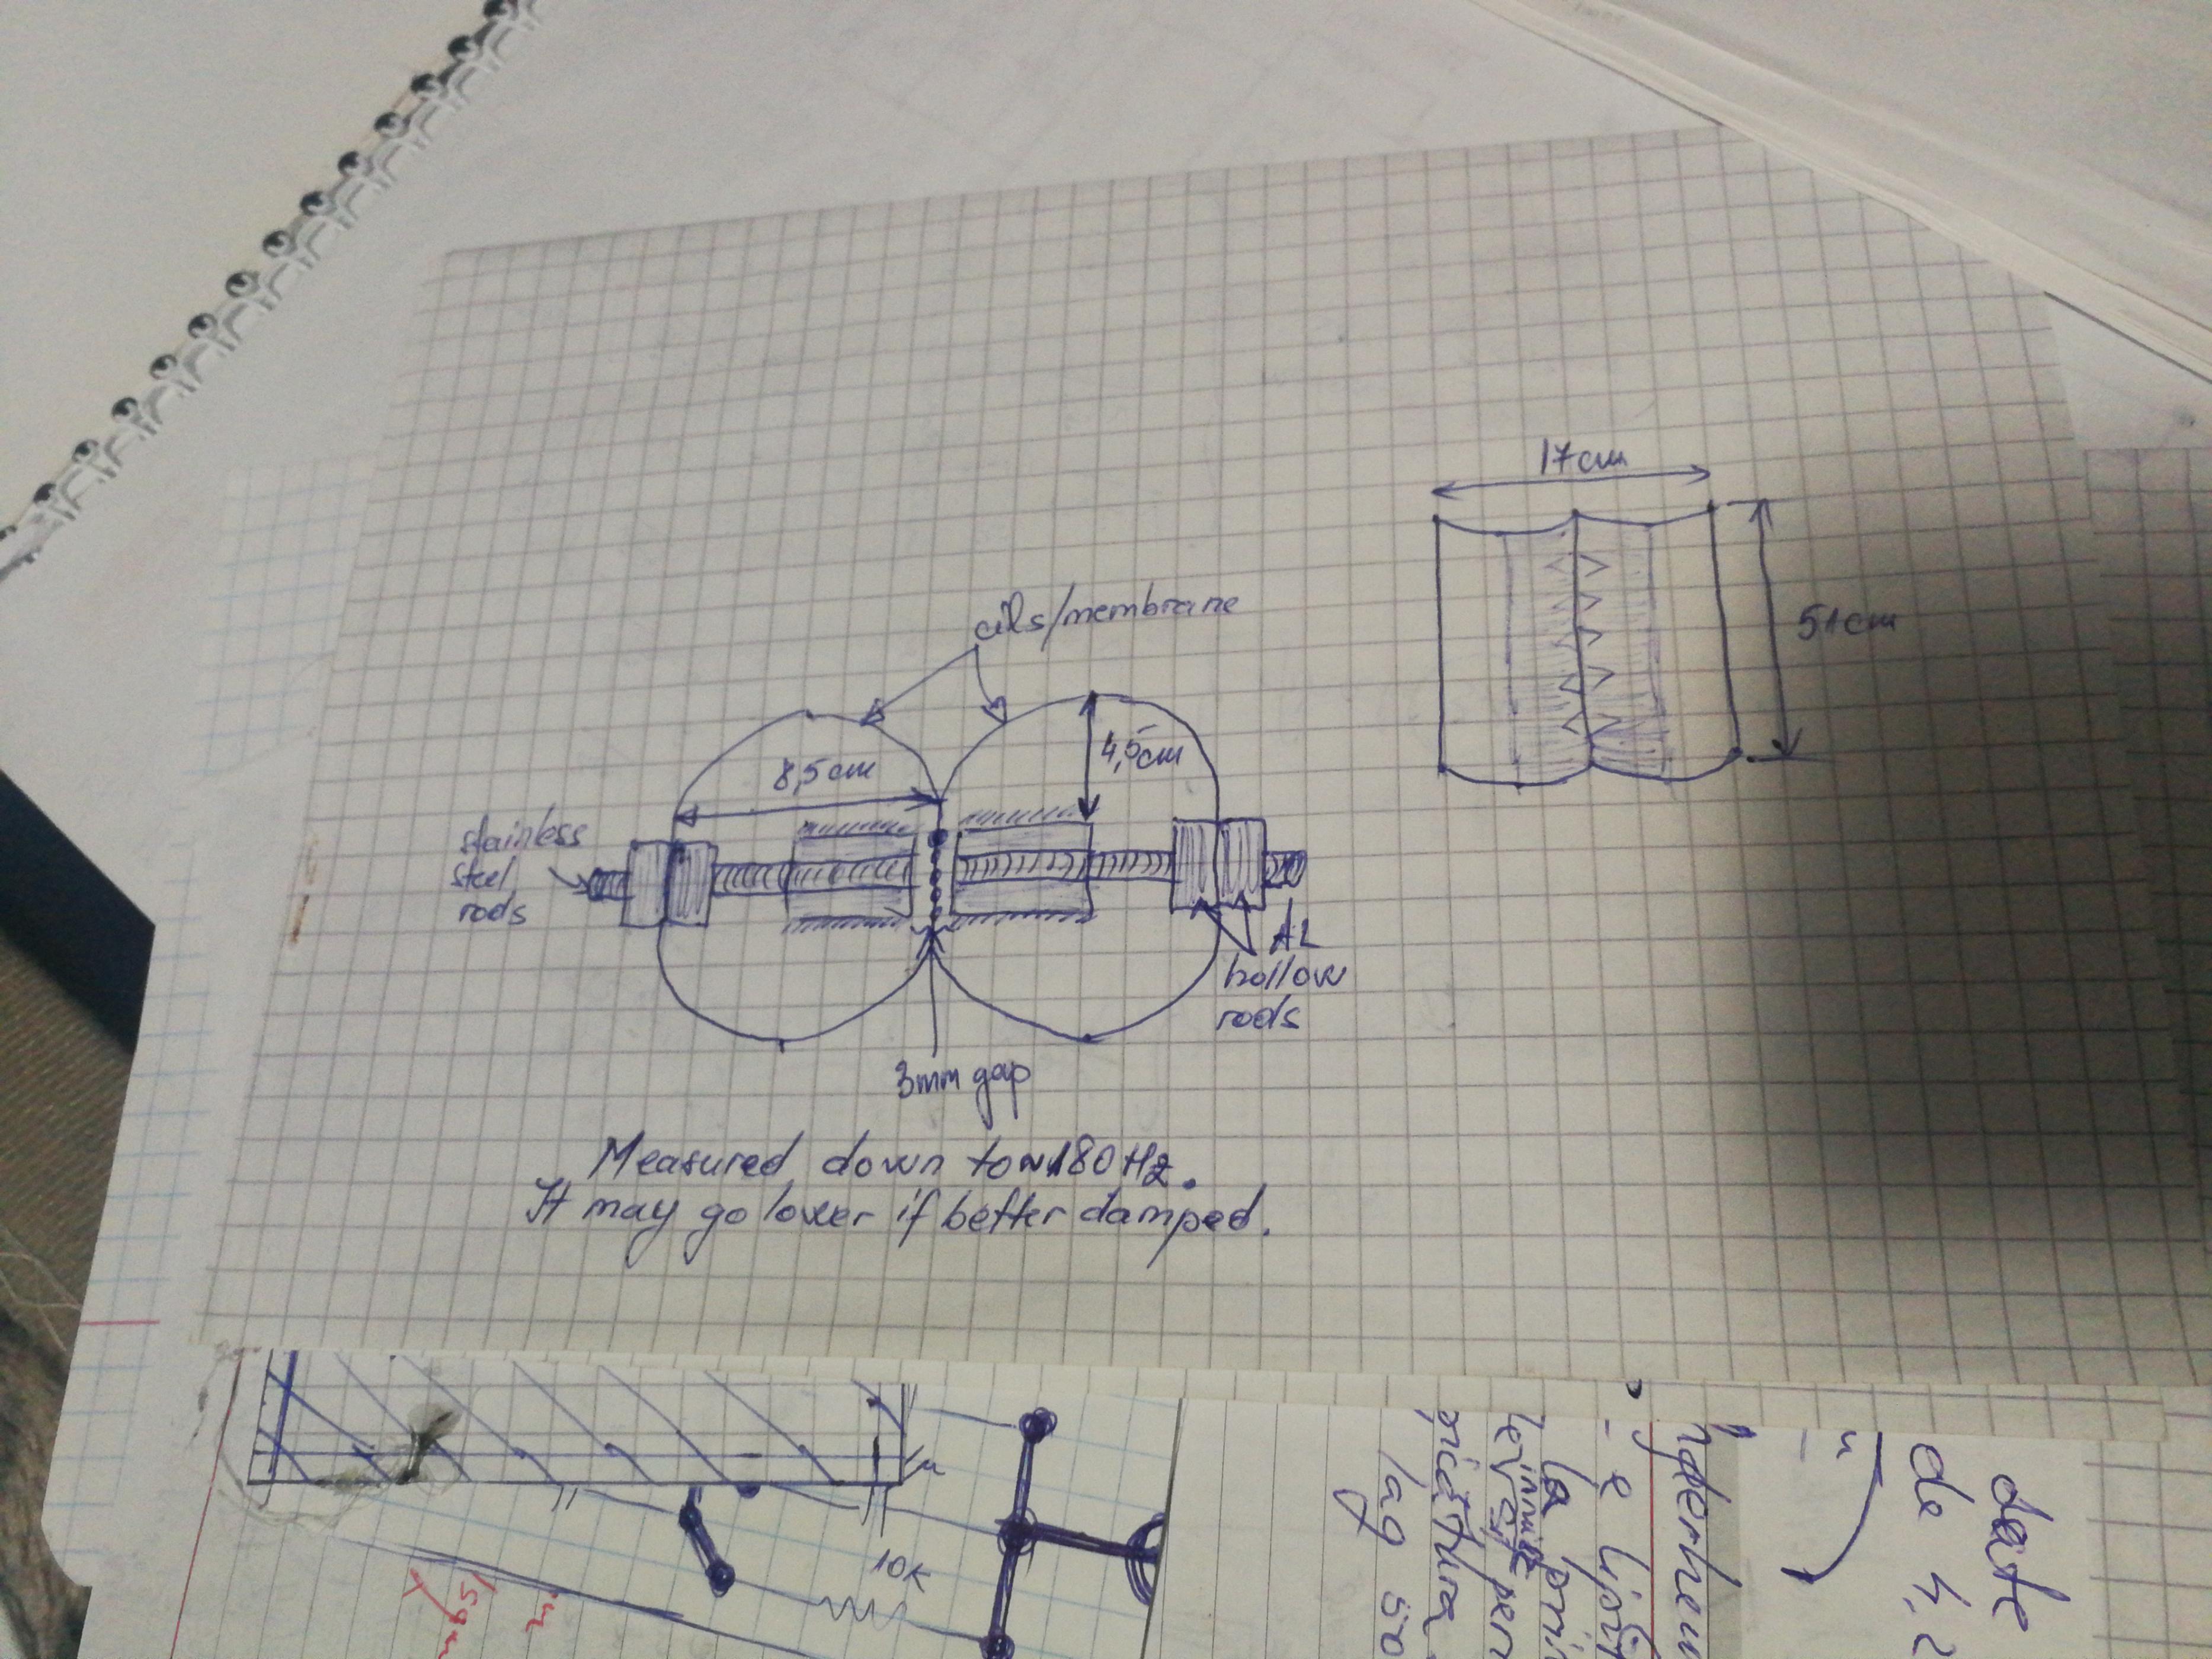 17cm
51cm
cils/membrane
4,5cm
8,5cm
stainless
steel
rods
AL
hollow
rods
3mm gap
Measured down to ~180Hz.
It may go lower if better damped.
10K
de 4,2
lag 50